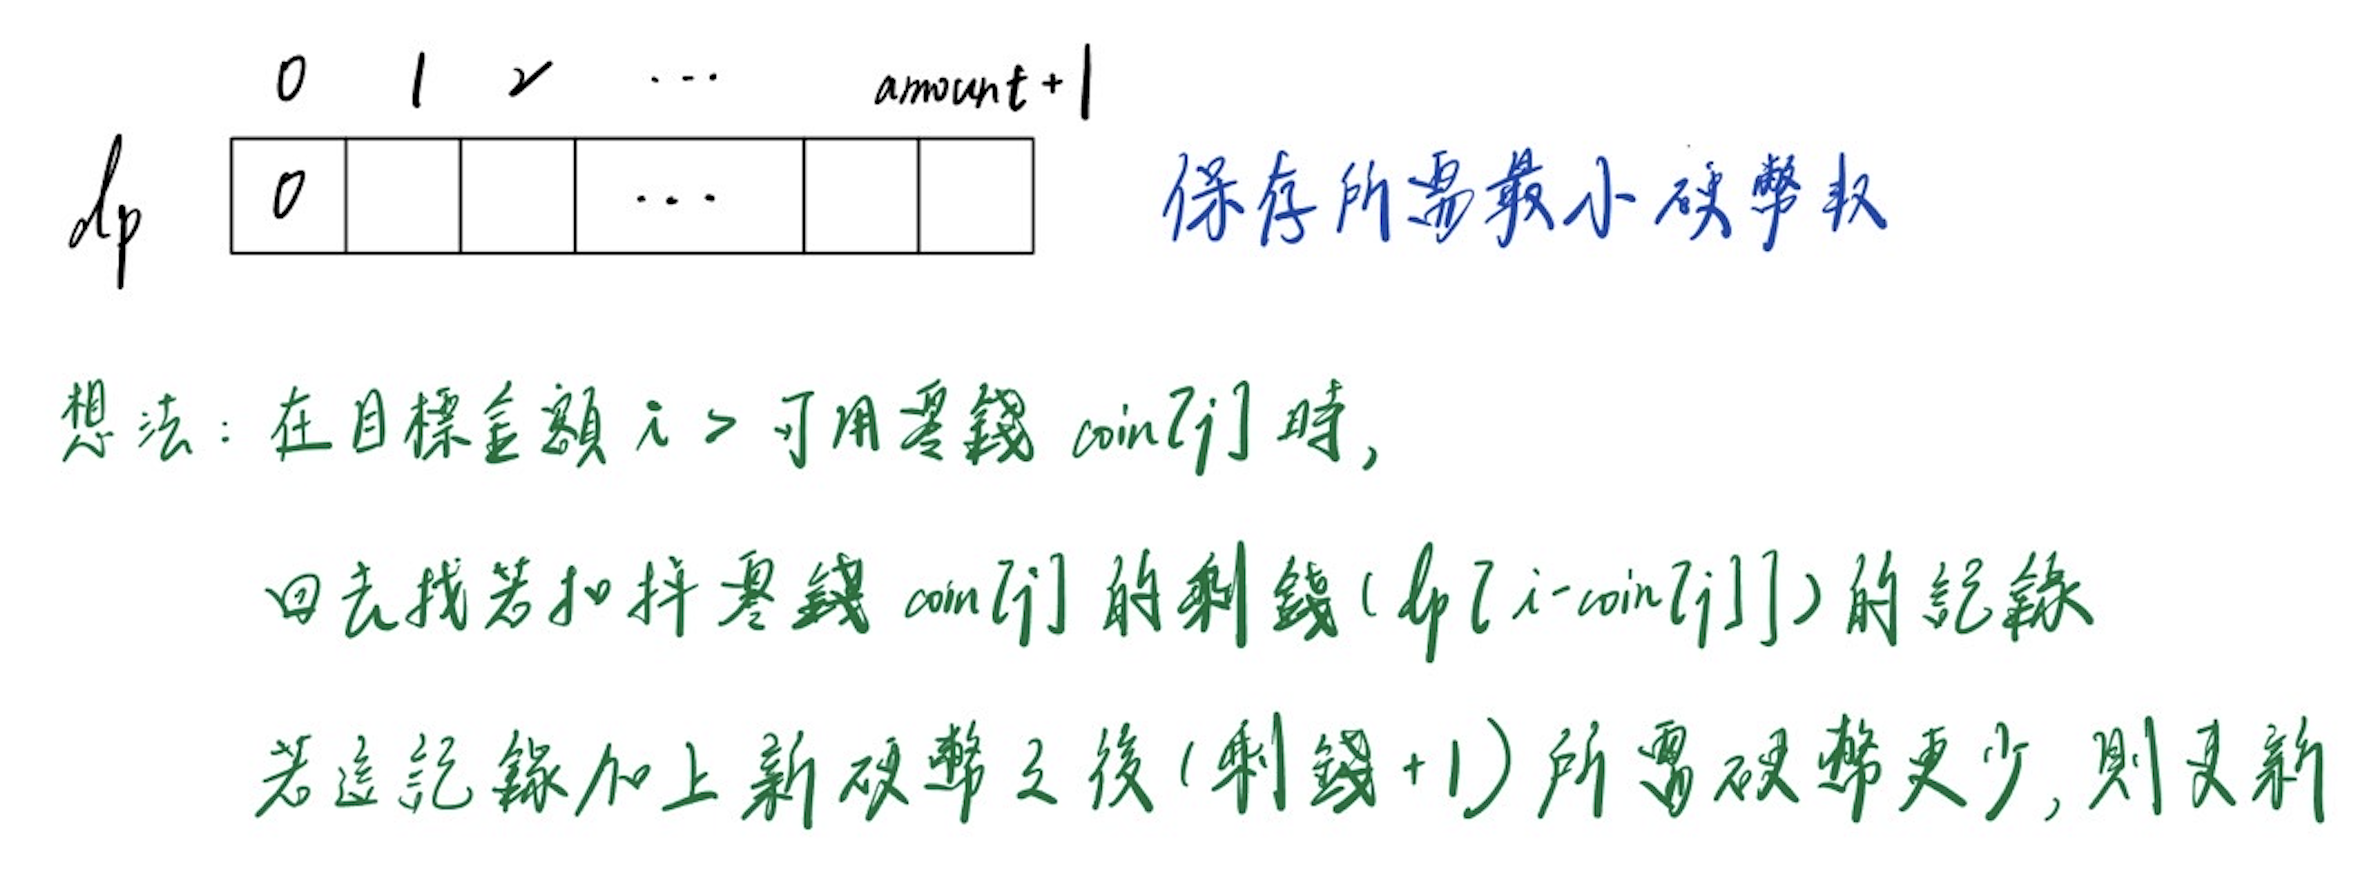 0 1 2 ... amount+1
dp 0 ... 保存所需最小硬幣數
想法：在目標金額 i > 可用零錢 coin[j] 時,
回去找若扣掉零錢 coin[j] 的剩錢(dp[i-coin[j]])的記錄
若這記錄加上新硬幣之後(剩錢+1)所需硬幣更少, 則更新